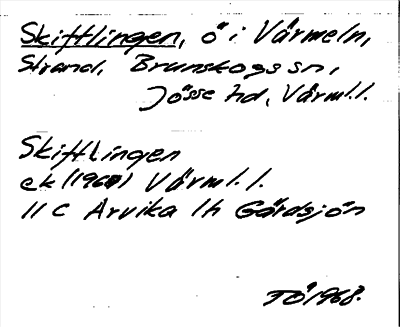 Skiftlingen, ö i Värmeln,
Strand, Brunskogs sn,
Jösse hd, Värml.l.
Skiftlingen
ek (1960) Värml.l.
11 C Arvika 1h Gårdsjön
TÖ 1968.